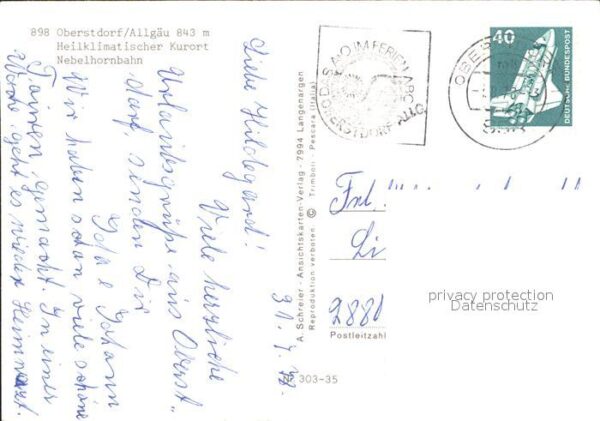 898 Oberstdorf/Allgäu 843 m
Heilklimatischer Kurort
Nebelhornbahn
31.7.
Liebe Hildegard!
Viele herzliche
Urlaubsgrüße aus Oberst„
dorf senden Dir
Ida & Johann
Wir haben schon viele schöne
Touren gemacht. In einer
Woche geht es wieder heimwärts.
A. Schreier - Ansichtskarten-Verlag - 7994 Langenargen
Reproduktion verboten © Trimboli - Pescara (Italia)
303-35
IM FERIEN
OBERSTDORF ALLG.
40
DEUTSCHE BUNDESPOST
Frl.
Li
2880
Postleitzahl
privacy protection
Datenschutz